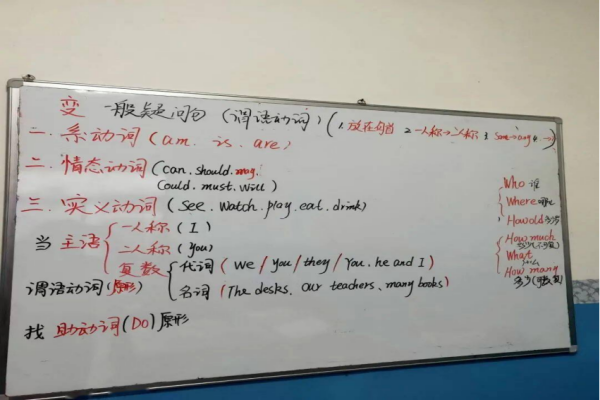 变 一般疑问句 (谓语动词) (1.放在句首 2.一人称→二人称 3 some→any 4. →?)
二. 系动词 (am. is. are)
二. 情态动词 (can. should. may.
Could. must. will)
三. 实义动词 (see. watch. play. eat. drink)
当 主语 { 一人称 (I)
二人称 (you)
复数 { 代词 (we / you / they / You. he and I)
谓语动词(原形) 名词 (The desks. Our teachers. many books)
找 助动词 (DO) 原形
Who 谁
Where 哪儿
How old 多少岁
How much
What 什么
How many